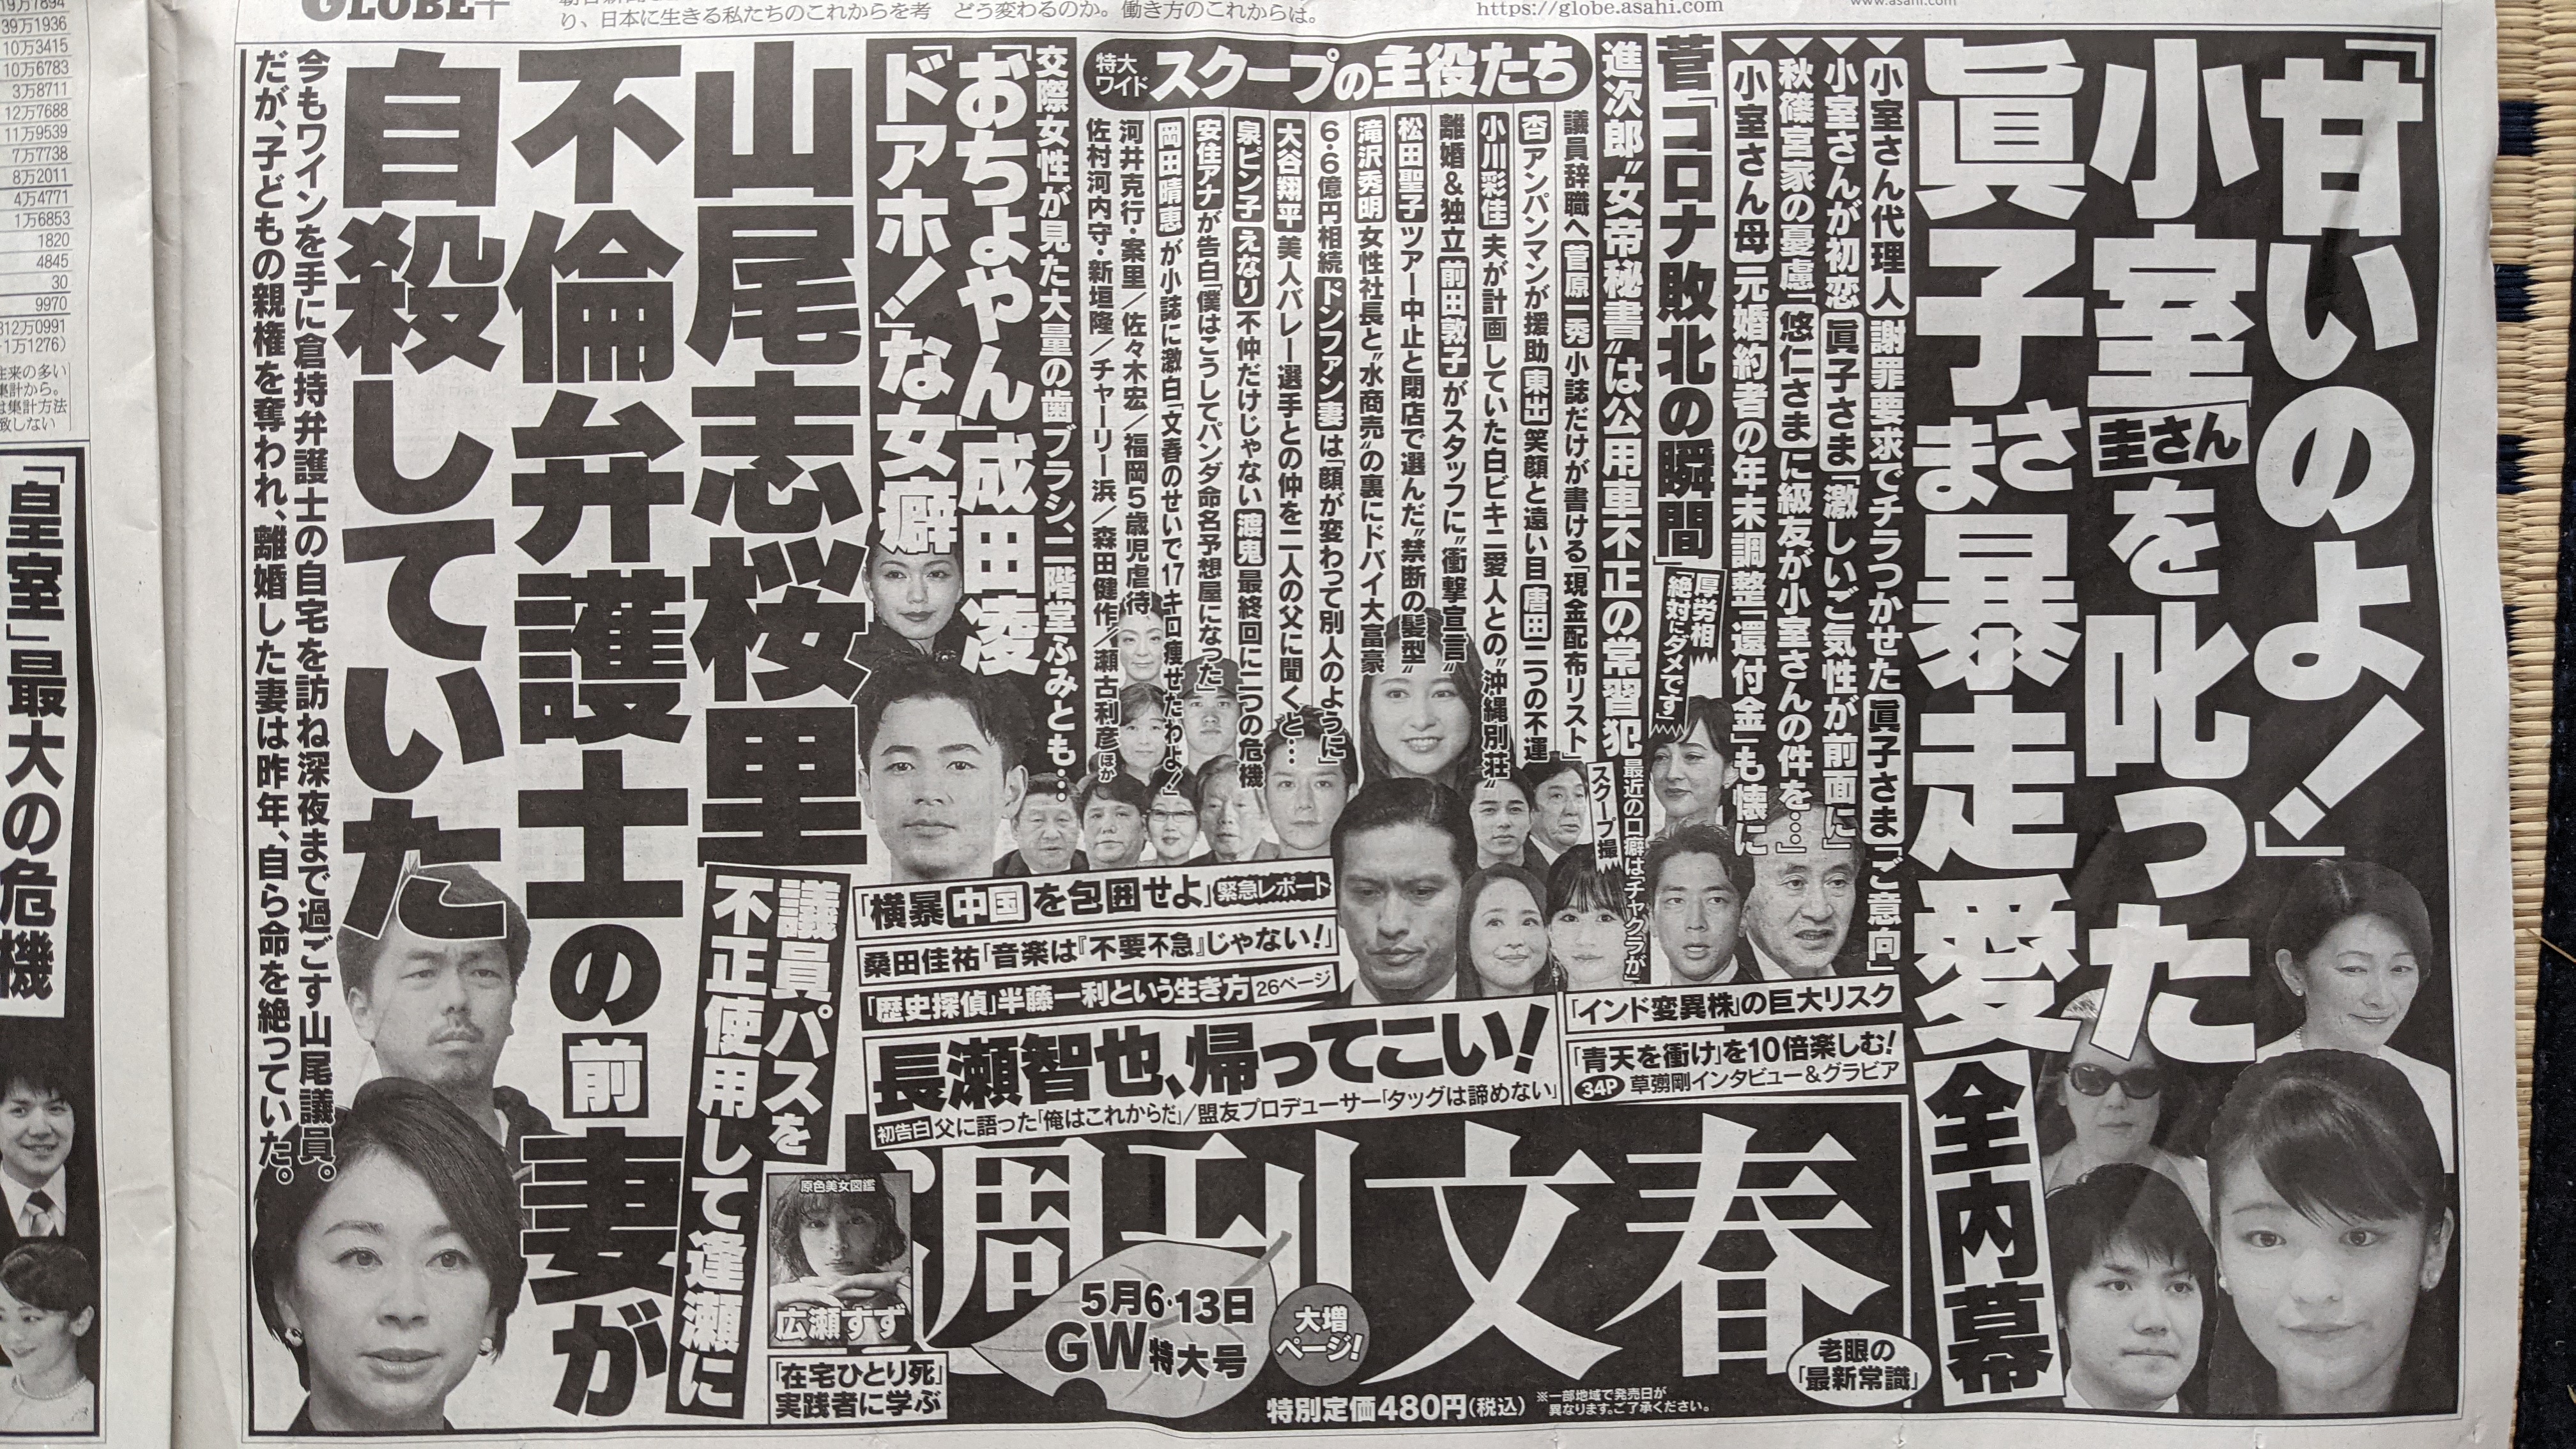 「甘いのよ！」
小室圭さんを叱った
眞子さま暴走愛
全内幕
小室さん代理人 謝罪要求でチラつかせた 眞子さま「ご意向」
小室さんが初恋 眞子さま「激しいご気性が前面に」
秋篠宮家の憂慮「悠仁さまに級友が小室さんの件を…」
小室さん母 元婚約者の年末調整「還付金」も懐に
菅「コロナ敗北の瞬間」
厚労相
「絶対にダメです」
進次郎“女帝秘書”は公用車不正の常習犯
最近の口癖はチャクラが
スクープ撮
特大
ワイド
スクープの主役たち
議員辞職へ 菅原一秀 小誌だけが書ける「現金配布リスト」
杏 アンパンマンが援助 東出 笑顔と遠い目 唐田 二つの不運
小川彩佳 夫が計画していた白ビキニ愛人との“沖縄別荘”
離婚＆独立 前田敦子 がスタッフに“衝撃宣言”
松田聖子 ツアー中止と閉店で選んだ“禁断の髪型”
滝沢秀明 女性社長と“水商売”の裏にドバイ大富豪
6・6億円相続 ドンファン妻 は「顔が変わって別人のように」
大谷翔平 美人バレー選手との仲を二人の父に聞くと…
泉ピン子 えなり 不仲だけじゃない 渡鬼 最終回に二つの危機
安住アナ が告白「僕はこうしてパンダ命名予想屋になった」
岡田晴恵 が小誌に激白「文春のせいで17キロ痩せたわよ！」
河井克行・案里／佐々木宏／福岡5歳児虐待
佐村河内守・新垣隆／チャーリー浜／森田健作／瀬古利彦ほか
交際女性が見た大量の歯ブラシ、二階堂ふみとも…
「おちょやん」成田凌
「ドアホ！」な女癖
山尾志桜里
不倫弁護士の前妻が
自殺していた
議員パスを
不正使用して逢瀬に
今もワインを手に倉持弁護士の自宅を訪ね深夜まで過ごす山尾議員。
だが、子どもの親権を奪われ、離婚した妻は昨年、自ら命を絶っていた。
「横暴中国を包囲せよ」緊急レポート
桑田佳祐「音楽は『不要不急』じゃない！」
「歴史探偵」半藤一利という生き方 26ページ
長瀬智也、帰ってこい！
初告白 父に語った「俺はこれからだ」／盟友プロデューサー「タッグは諦めない」
「インド変異株」の巨大リスク
「青天を衝け」を10倍楽しむ！
34P 草彅剛インタビュー＆グラビア
週刊文春
5月6・13日
GW特大号
大増
ページ！
特別定価480円（税込）
※一部地域で発売日が
異なります。ご了承ください。
老眼の
「最新常識」
原色美女図鑑
広瀬すず
「在宅ひとり死」
実践者に学ぶ
GLOBE+
り、日本に生きる私たちのこれからを考
どう変わるのか。働き方のこれからは。
https://globe.asahi.com
www.asahi.com
39万1936
10万3415
10万6783
3万8711
12万7688
11万9539
7万7738
8万2011
4万4771
1万6853
1820
4845
30
9970
312万0991
1万1276）
往来の多い
集計から。
は集計方法
致しない
「皇室」最大の危機